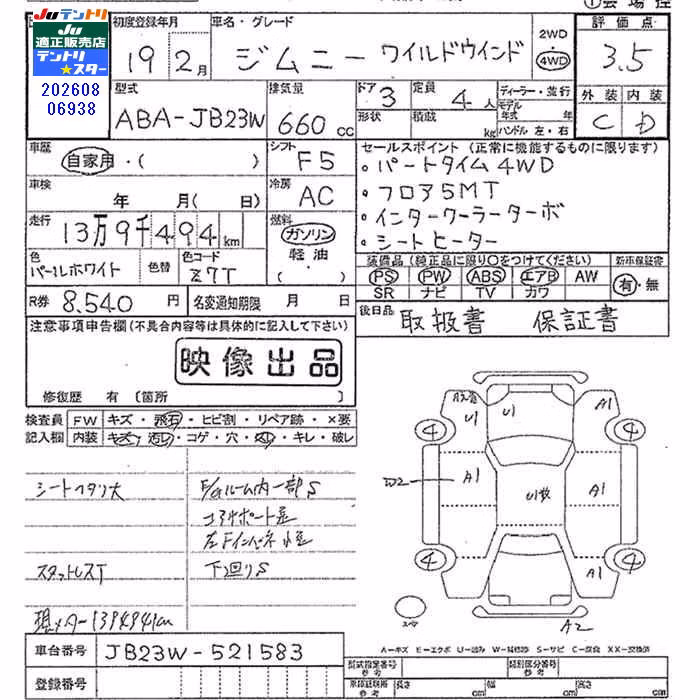 ①会場控
JU テントリ
JU 適正販売店
テントリ
★スター
202608
06938
初度登録年月
19 2月
車名・グレード
ジムニー ワイルドウインド
2WD
4WD
評価点
3.5
外装 内装
C D
型式
ABA-JB23W
排気量
660 CC
ドア 3
形状
定員 4人
積載 kg
ディーラー・並行
モデル年式 年
ハンドル 左・右
車歴
自家用・( )
シフト
F5
車検
年 月( 日)
冷房
AC
走行
13万9千494 km
燃料
ガソリン
軽油
( )
色
パールホワイト
色替
色コード
Z7T
R券 8.540 円
名変通知期限 月 日
セールスポイント(正常に機能するものに限ります)
・パートタイム4WD
・フロア5MT
・インタークーラーターボ
・シートヒーター
装備品(純正品に限り○をつけてください)
PS PW ABS エアB AW
SR ナビ TV カワ
新車保証書
有・無
後日品 取扱書 保証書
注意事項申告欄(不具合内容等は具体的に記入して下さい)
映像出品
修復歴 有〔箇所 〕
検査員記入欄
FW キズ・飛石・ヒビ割・リペア跡・×要
内装 キズ・汚レ・コゲ・穴・スレ・キレ・破レ
シートヘタリ大
スタットレスT
現メーター139494km
F/Gルーム内一部S
コアサポート歪
下廻りS
U1 U1 A1
4 4
D2 A1 U1 A1
4 4
A1
スペア
A2
A-キズ E-エクボ U-凹み W-補修跡 S-サビ C-腐食 XX-交換済
車台番号 JB23W-521583
登録番号
型式指定番号
参考
類別区分番号
参考
車庫証明用
参考
長さ cm
幅 cm
高さ cm